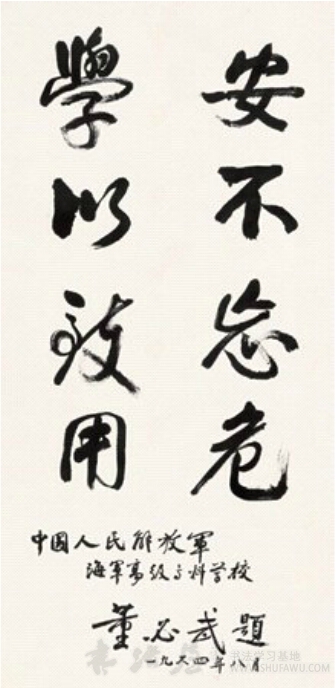 安不忘危
學以致用
中國人民解放軍
海軍高級专科学校
董必武題
一九六四年八月
书法学习基地
WWW.SHUFAWU.COM